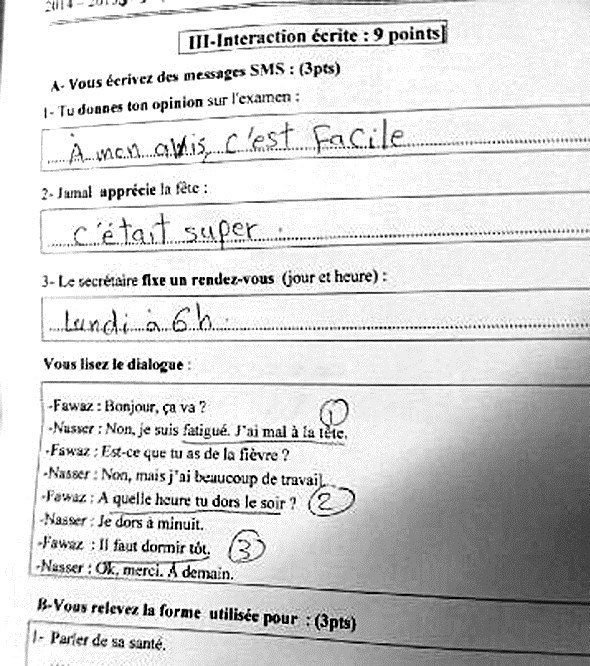 2014 - 2015
III-Interaction écrite : 9 points
A- Vous écrivez des messages SMS : (3pts)
1- Tu donnes ton opinion sur l'examen :
À mon avis, c'est Facile
2- Jamal apprécie la fête :
C'était super.
3- Le secrétaire fixe un rendez-vous (jour et heure) :
lundi à 6h.
Vous lisez le dialogue :
-Fawaz : Bonjour, ça va ?
-Nasser : Non, je suis fatigué. J'ai mal à la tête. 1
-Fawaz : Est-ce que tu as de la fièvre ?
-Nasser : Non, mais j'ai beaucoup de travail.
-Fawaz : A quelle heure tu dors le soir ? 2
-Nasser : Je dors à minuit.
-Fawaz : Il faut dormir tôt. 3
-Nasser : Ok, merci. À demain.
B-Vous relevez la forme utilisée pour : (3pts)
1- Parler de sa santé.